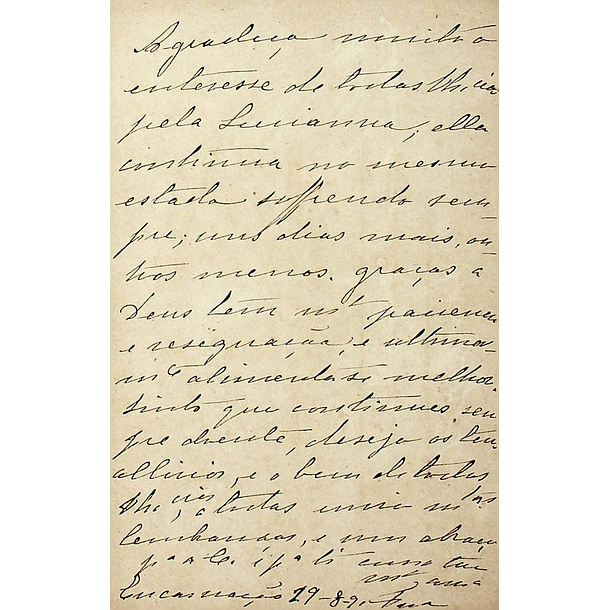 Agradeço muito o
interesse de todas Vh. cias
pela Lucianna; ella
continua no mesmo
estado soffrendo sem-
pre; uns dias mais, ou-
tros menos. graças a
Deus tem mt paciencia
e resignação, e ultima-
mte alimenta-se melhor.
sinto que continues sem-
pre doente, desejo os teus
allivios, e o bem de todas
Vh. cias, a todas envio mtas
lembranças, e um abraço
pa a C. e pa ti
mto ama
Encarnação 29-89.